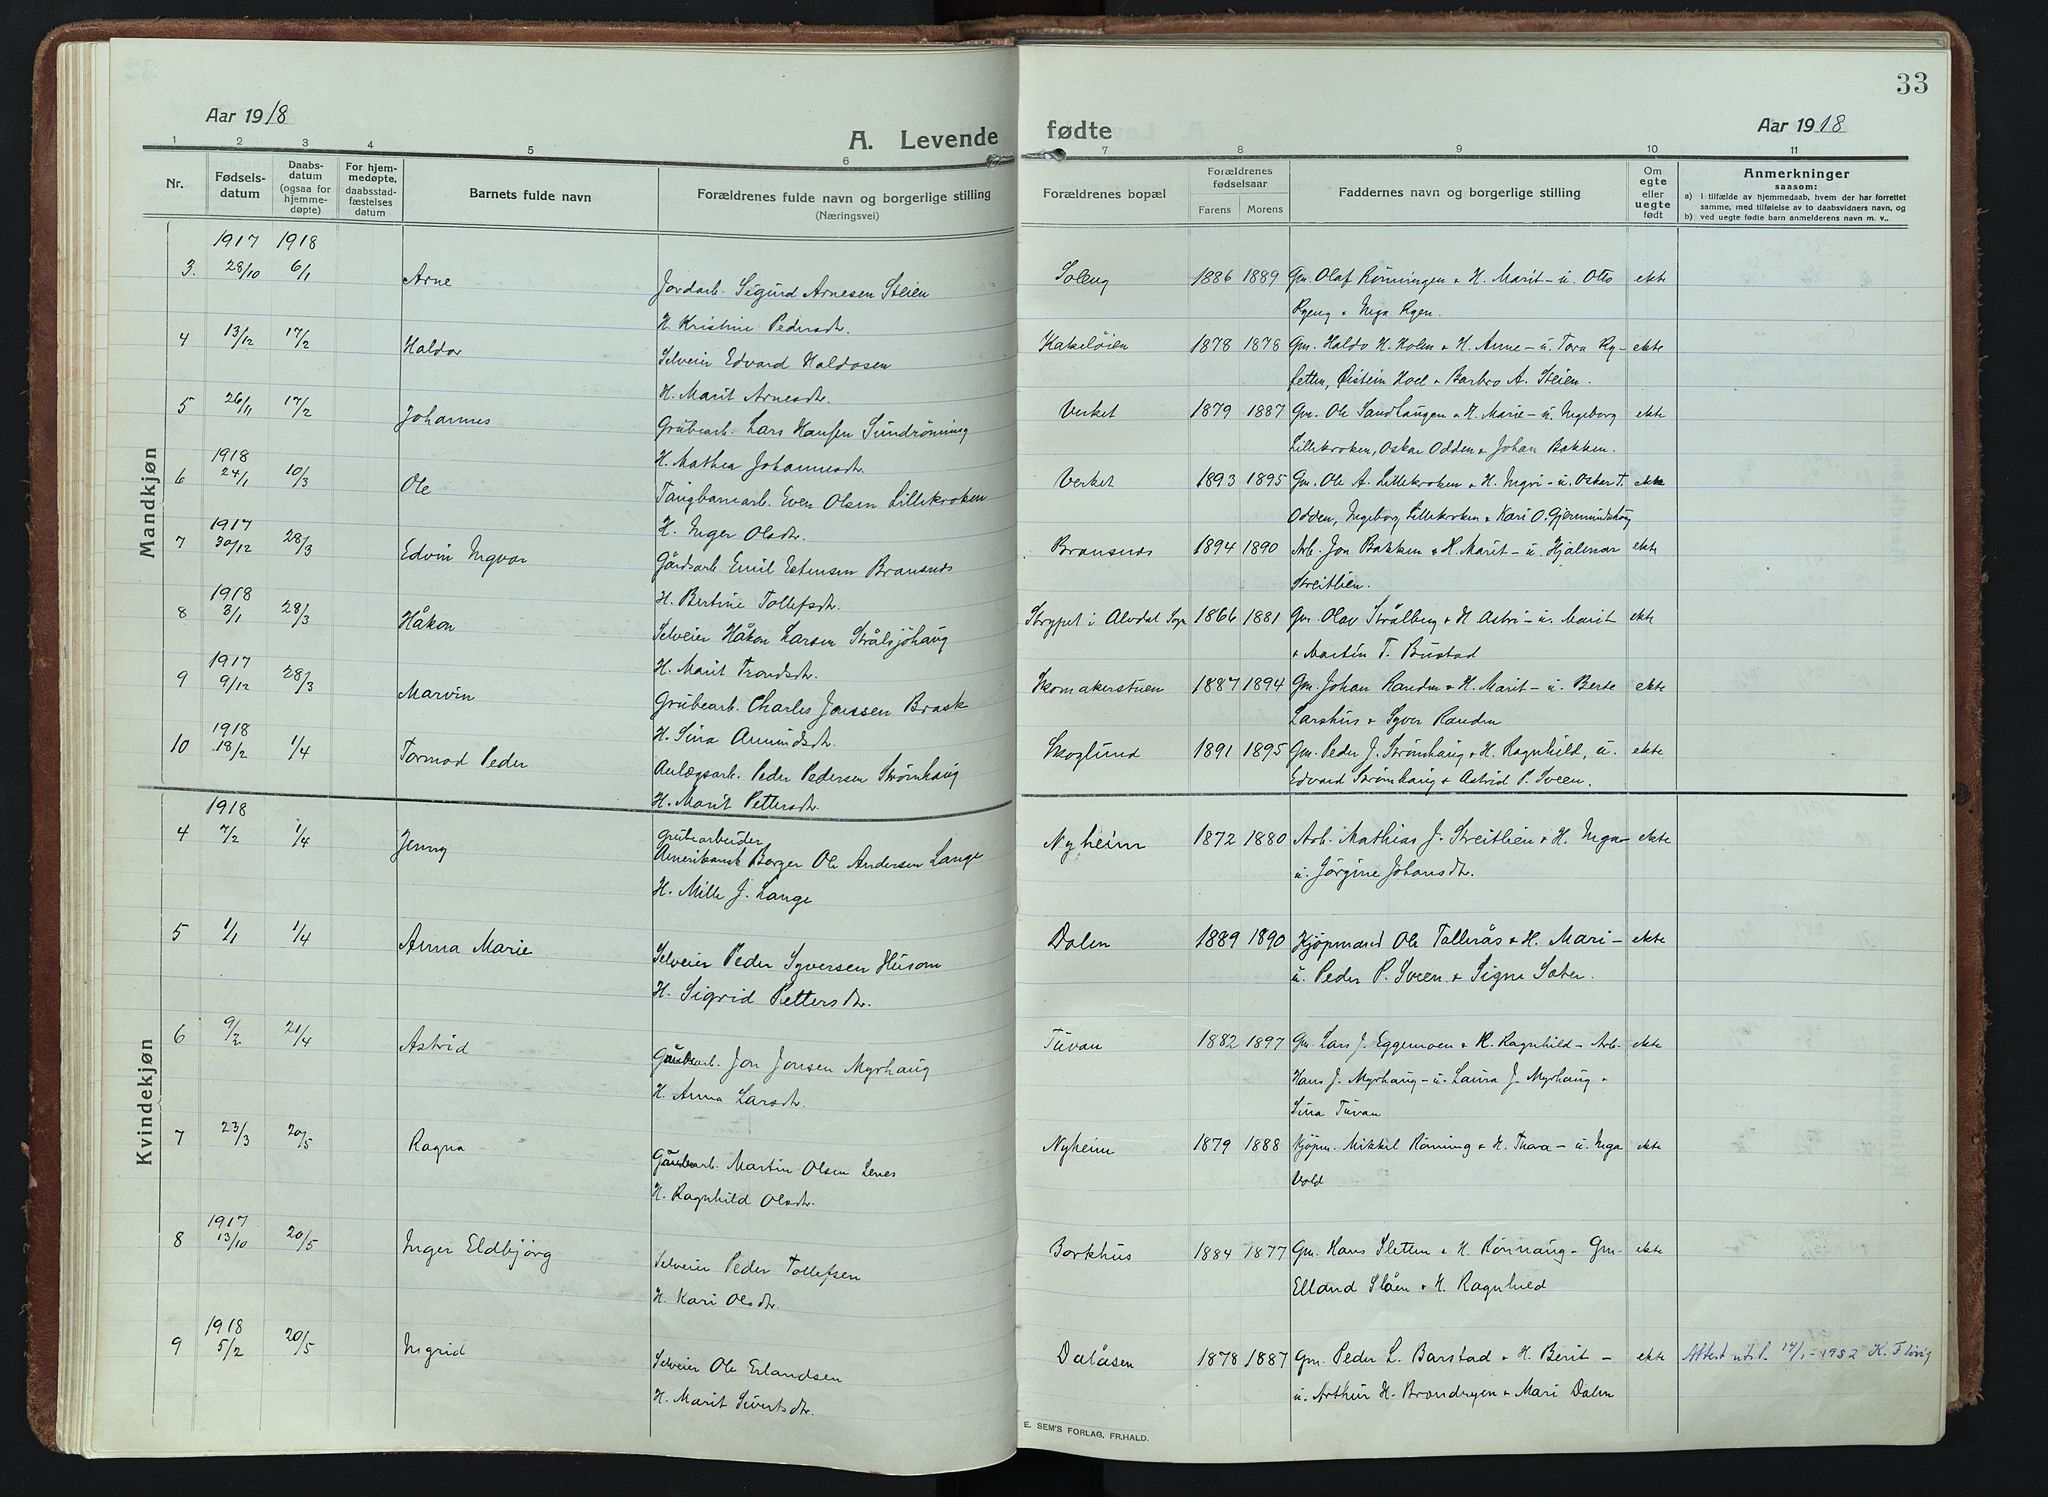 33
Aar 1918
A. Levende fødte
Aar 1918
1 2 3 4 5 6 7 8 9 10 11
Nr.
Fødsels-
datum
Daabs-
datum
(ogsaa for
hjemme-
døpte)
For hjem-
medøpte,
daabsstad-
fæstelses
datum
Barnets fulde navn
Forældrenes fulde navn og borgerlige stilling
(Næringsvei)
Forældrenes bopæl
Forældrenes
fødselsaar
Farens Morens
Faddernes navn og borgerlige stilling
Om
egte
eller
uegte
født
Anmerkninger
saasom:
a) i tilfælde av hjemmedaab, hvem der har forrettet
samme, med tilføielse av to daabsvidners navn, og
b) ved uegte fødte barn anmelderens navn m. v..
Mandkjøn
1917 1918
3. 28/10 6/1 Arne Jordarb. Sigurd Arnesen Steien Soleng 1886 1889 Gm. Olaf Rønningen & H. Marit - u. Otto ekte
H. Kristine Pedersdtr. Ryeng & Inga Ryen.
4 13/12 17/2 Haldor Selveier Edvard Haldosen Kakeløien 1878 1878 Gm. Haldo H. Holm & H. Anne - u. Tora Ry- ekte
H. Marit Arnesdtr. fetten, Øistein Hoel & Barbro A. Steien.
5 26/11 17/2 Johannes Grubearb. Lars Hansen Sundrønning Verket 1879 1887 Gm. Ole Sandtangen & H. Marie - u. Ingeborg ekte
H. Mathea Johannesdtr. Lillekroken, Oskar Odden & Johan Bakken.
1918
6 24/1 10/3 Ole Taugbanearb. Even Olsen Lillekroken Verket 1893 1895 Gm. Ole A. Lillekroken & H. Ingri - u. Oskar T. ekte
H. Inger Olsdtr. Odden, Ingeborg Lillekroken & Kari O. Gjermundshaug
1917
7 30/12 28/3 Edvin Ingvar Gårdsarb. Emil Estensen Bransnes Bransnes 1894 1890 Arb. Jon Bakken & H. Marit - u. Hjalmar ekte
H. Bertine Tollefsdtr. Streitlien.
1918
8 3/1 28/3 Håkon Selveier Håkon Larsen Strålsjøhaug Strypet i Alvdal Sogn 1866 1881 Gm. Olav Strålberg & H Astri - u. Marit ekte
H. Marit Trondsdtr. & Martin T. Bustad
1917
9 9/12 28/3 Marvin Grubearb. Charles Jonssen Brask Skomakerstuen 1887 1894 Gm. Johan Randen & H. Marit - u. Berte ekte
H. Sina Amundsdtr. Larshus & Syver Randen
1918
10 18/2 1/4 Tormod Peder Anlægsarb. Peder Pedersen Strømhaug Skoglund 1891 1895 Gm. Peder J. Strømhaug & H. Ragnhild, u. ekte
H. Marit Pettersdtr. Edvard Strømhaug & Astrid P. Sveen.
Kvindekjøn
1918
4 7/2 1/4 Jenny Grubearbeider
Amerikansk Borger Ole Andersen Lange Nyheim 1872 1880 Arb. Mathias J. Streitlien & H. Inga ekte
H. Mille J. Lange u. Jørgine Johansdtr.
5 1/1 1/4 Anna Marie Selveier Peder Syversen Husom Dalen 1889 1890 Kjøpmand Ole Tollerås & H. Mari - ekte
H. Sigrid Pettersdtr. u. Peder P. Sveen & Signe Sæter.
6 9/2 21/4 Astrid Gårdsarb. Jon Jonsen Myrhaug Tuvan 1882 1897 Gm. Lars J. Eggemoen & H. Ragnhild - Arb. ekte
H. Anna Larsdtr. Hans J. Myrhaug - u. Laura J. Myrhaug &
Sina Tuvan
7 23/3 20/5 Ragna Gårdsarb. Martin Olsen Lenes Nyheim 1879 1888 Kjøpm. Mikkel Rønning & H. Thora - u. Inga ekte
H. Ragnhild Olsdtr. Vold
1917
8 13/10 20/5 Inger Eldbjørg Selveier Peder Tollefsen Borkhus 1884 1877 Gm. Hans Sletten & H. Rønnaug - Gm. ekte
H. Kari Olsdtr. Elland Slåen & H. Ragnhild
1918
9 5/2 20/5 Ingrid Selveier Ole Erlandsen Dalåsen 1878 1887 Gm. Peder L. Barstad & H. Berit - ekte Attest utst. 14/1-1952 K. Fløvig
H. Marit Sivertsdtr. u. Arthur H. Brandryen & Mari Dalen
E. SEM'S FORLAG, FR.HALD.